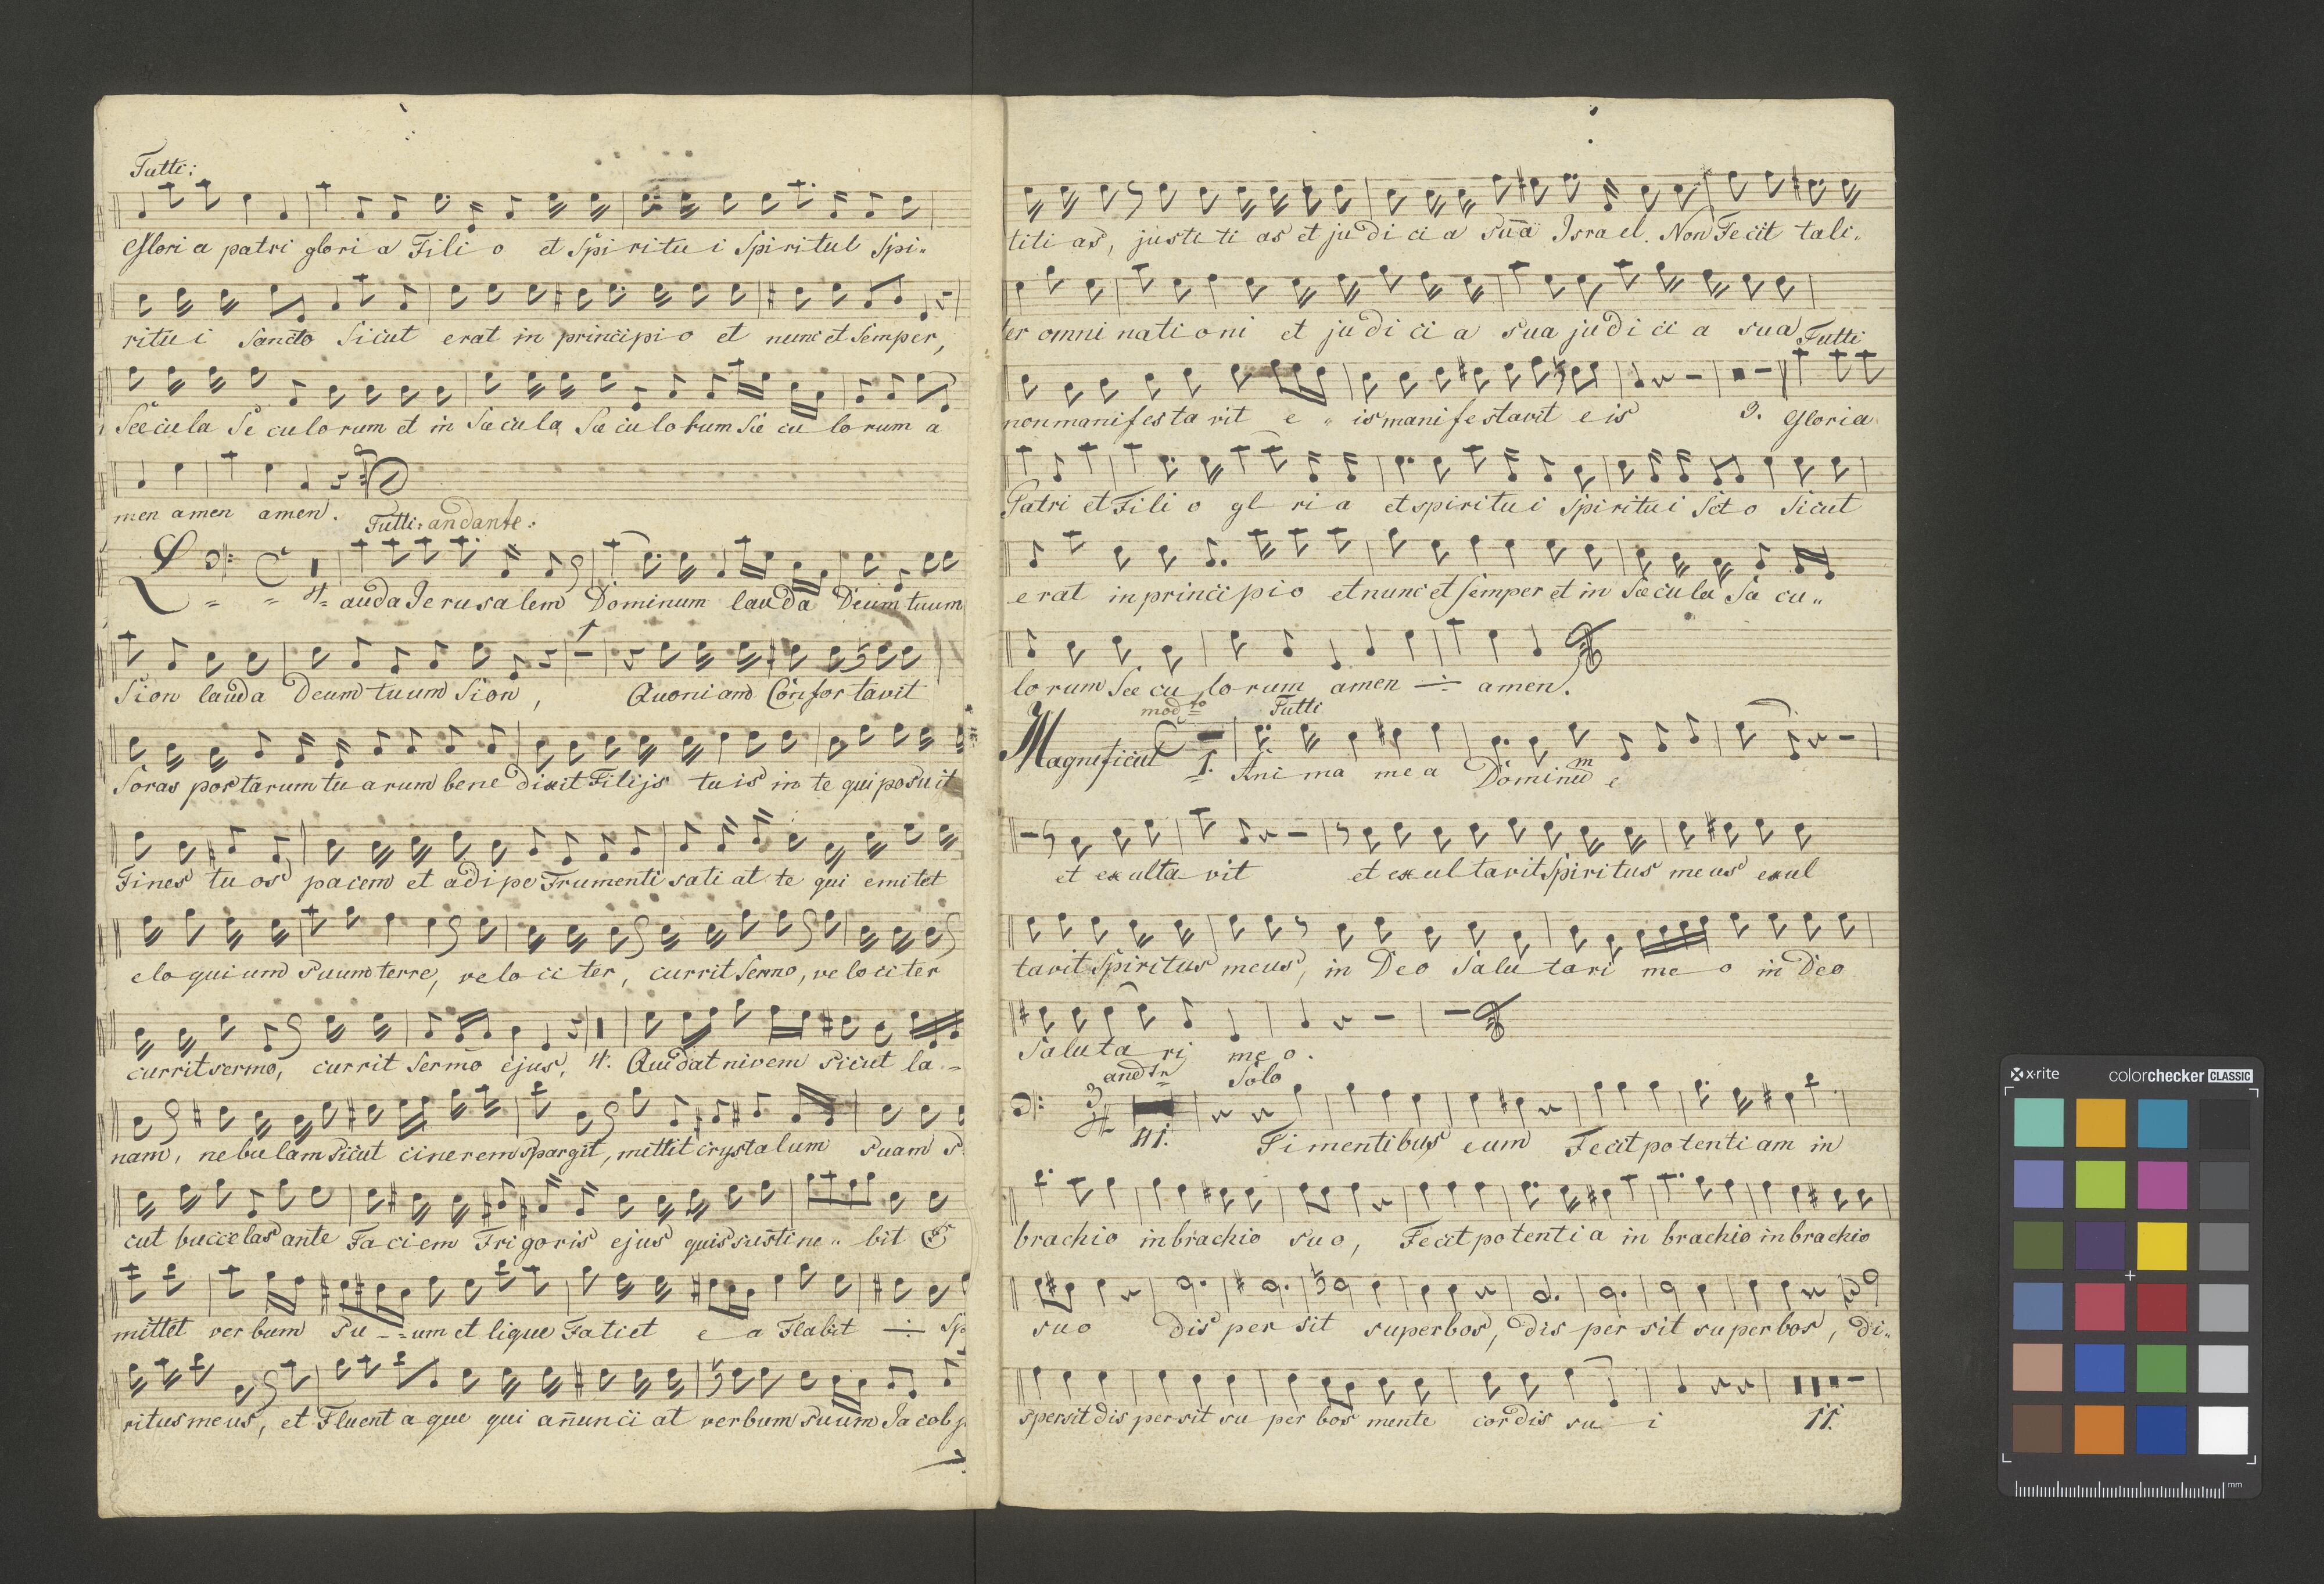 Tutti:
Glori a patri glori a Fili o et Spi ritu i Spi ritul Spi„
ritu i Sancto Sicut erat in principi o et nunc et Semper,
Sæcula Se culo rum et in Sæ cula Sæ cu lo rum Sæ cu lo rum a
men amen amen.
Tutti: andante:
L = = 4. auda Jerusalem Dominum lauda Deum tuum
Sion lauda Deum tuum Sion, Quoniam Confortavit
Soras portarum tu arum bene dixit Filijs tu is in te qui posuit
Fines tu os pacem et adipe Frumenti sati at te qui emitet
elo qui um suum terre, velo ci ter, currit Sermo, velo citer
currit sermo, currit Sermo ejus, 4. Qui dat nivem sicut la =
nam, nebulam sicut cinerem spargit, mittit crystalum suam s
cut buccelas ante Faciem Frigoris ejus quis sustine „ bit &
mittet verbum su - = um et lique Fatiet e a Flabit ÷ Sp
ritus meus, et Fluent aque qui añunci at verbum suum Jacob
titi as, justi ti as et judi ci a suã Israel. Non Fecit tali„
ter omni nati oni et judi ci a sua judi ci a sua
Tutti
non manifesta vit e „ is manifestavit e is 9. Gloria
Patri et Fili o gl ri a et spiritu i Spiritu i Scto Sicut
erat in principi o et nunc et Semper et in Sæ cula Sæ cu„
lo rum Sæ cu lo rum amen ÷ amen.
mod to Tutti
Magnificat 1. Ani ma me a Dominu m e
et exulta vit et exul tavit Spiritus meus exul
tavit Spiritus meus, in Deo Salu tari me o in Deo
Saluta ri me o.
and Solo
11. Timentibus eum Fecit potenti am in
brachio in brachio suo, Fecit potenti a in brachio in brachio
suo dis per sit superbos, dis per sit superbos, di„
spersit dis persit su per bos mente cordis su i 11.
x-rite colorchecker CLASSIC
mm